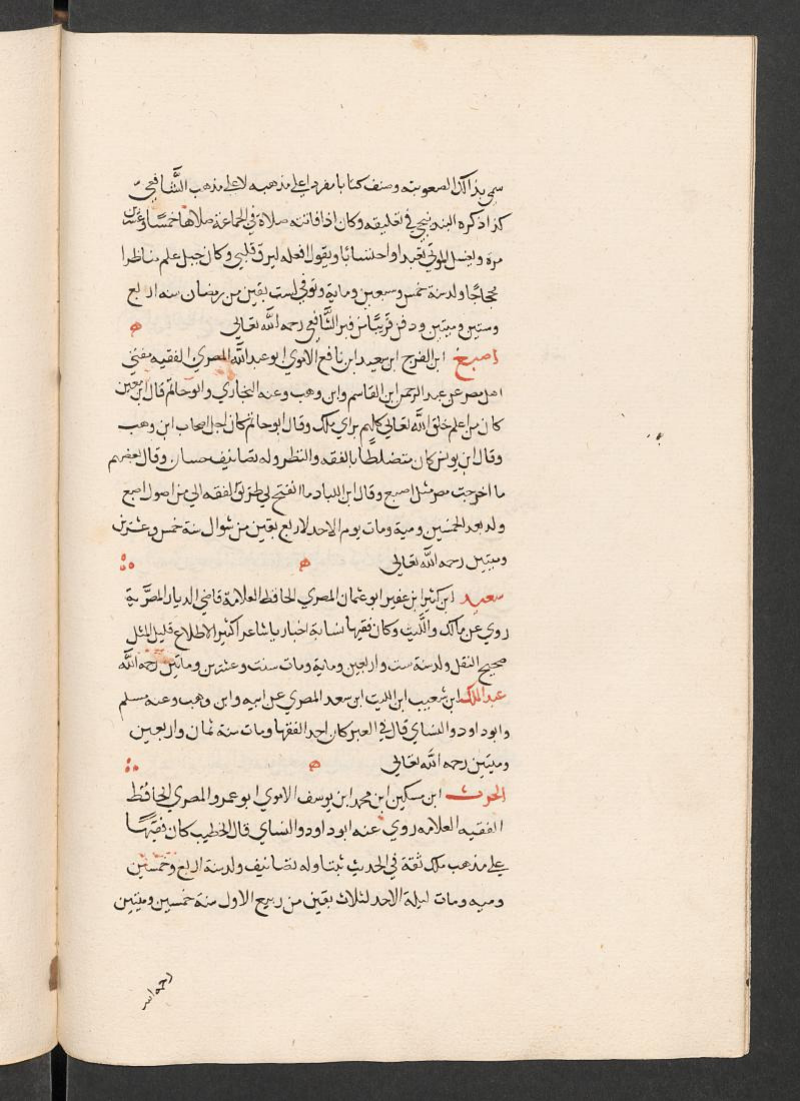 سمي بذالك الصعوبته وصنف كتابا مفردا علي مذهبه لا علي مذهب الشَّافعيّ
كذا ذكره البندنيجي في تعليقه وكان اذا فاتته صلاة في الجماعة صلاها خمسًا وعشرين
مرة ويغسل الموتي تعبدا واحتسابا ويقول افعله ليرق قلبي وكان جبل علم مناظرا
محجاجا ولد سنة خمس وسبعين وماية وتوفي لست بقين من رمضان سنه اربع
وستين وميتين ودفن قريبًا من قبر الشَّافعي رحمه الله تعالي
اصبغ ابن الفرج ابن سعيد ابن نافع الاموي ابو عبد الله المصري الفقيه مفتي
اهل مصر عن عبد الرحمن ابن القاسم وابن وهب وعنه البخاري وابو حاتم قال ابن معين
كان من اعلم خلق الله تعالي كلهم براي ملك وقال ابو حاتم كان اجل اصحاب ابن وهب
وقال ابن يونس كان متضلطًا بالفقه والنظر وله تصانيف حسان وقال بعضهم
ما اخرجت مصر مثل اصبع وقال ابن اللباد ما انفتح لي طريق الفقه الي من اصول اصبع
ولد بعد الخمسين وميه ومات يوم الاحد لاربع بقين من شوال سنة خمس وعشرين
وميتين رحمه الله تعالي
سعيد ابن كثير ابن عفير ابو عثمان المصري الحافظ العلامة قاضي الديار المصرية
روي عن مالك واللَّيث وكان فقيها نسابة اخباريا شاعرا كثير الاطلاع قليل المثل
صحيح النقل ولد سنة ست واربعين وماية ومات سنت وعشرين وماتين رحمه الله
عبد الملك ابن شعيب ابن الليث ابن سعد المصري عن ابيه وابن وهب وعنه مسلم
وابو داود والنساي قال في العبر كان احد الفقها ومات سنة ثمان واربعين
وميتين رحمه الله تعالي
الحرث ابن مسكين ابن محمد ابن يوسف الاموي ابو عمرو المصري الحافظ
الفقيه العلامه روي عنه ابو داود والنساي قال الخطيب كان فقيهًا
علي مذهب ملك ثقة في الحديث ثبتا وله تصانيف ولد سنة اربع وخمسين
وميه ومات ليلة الاحد لثلاث بقين من ربيع الاول سنة خمسين وميتين
رحمه الله